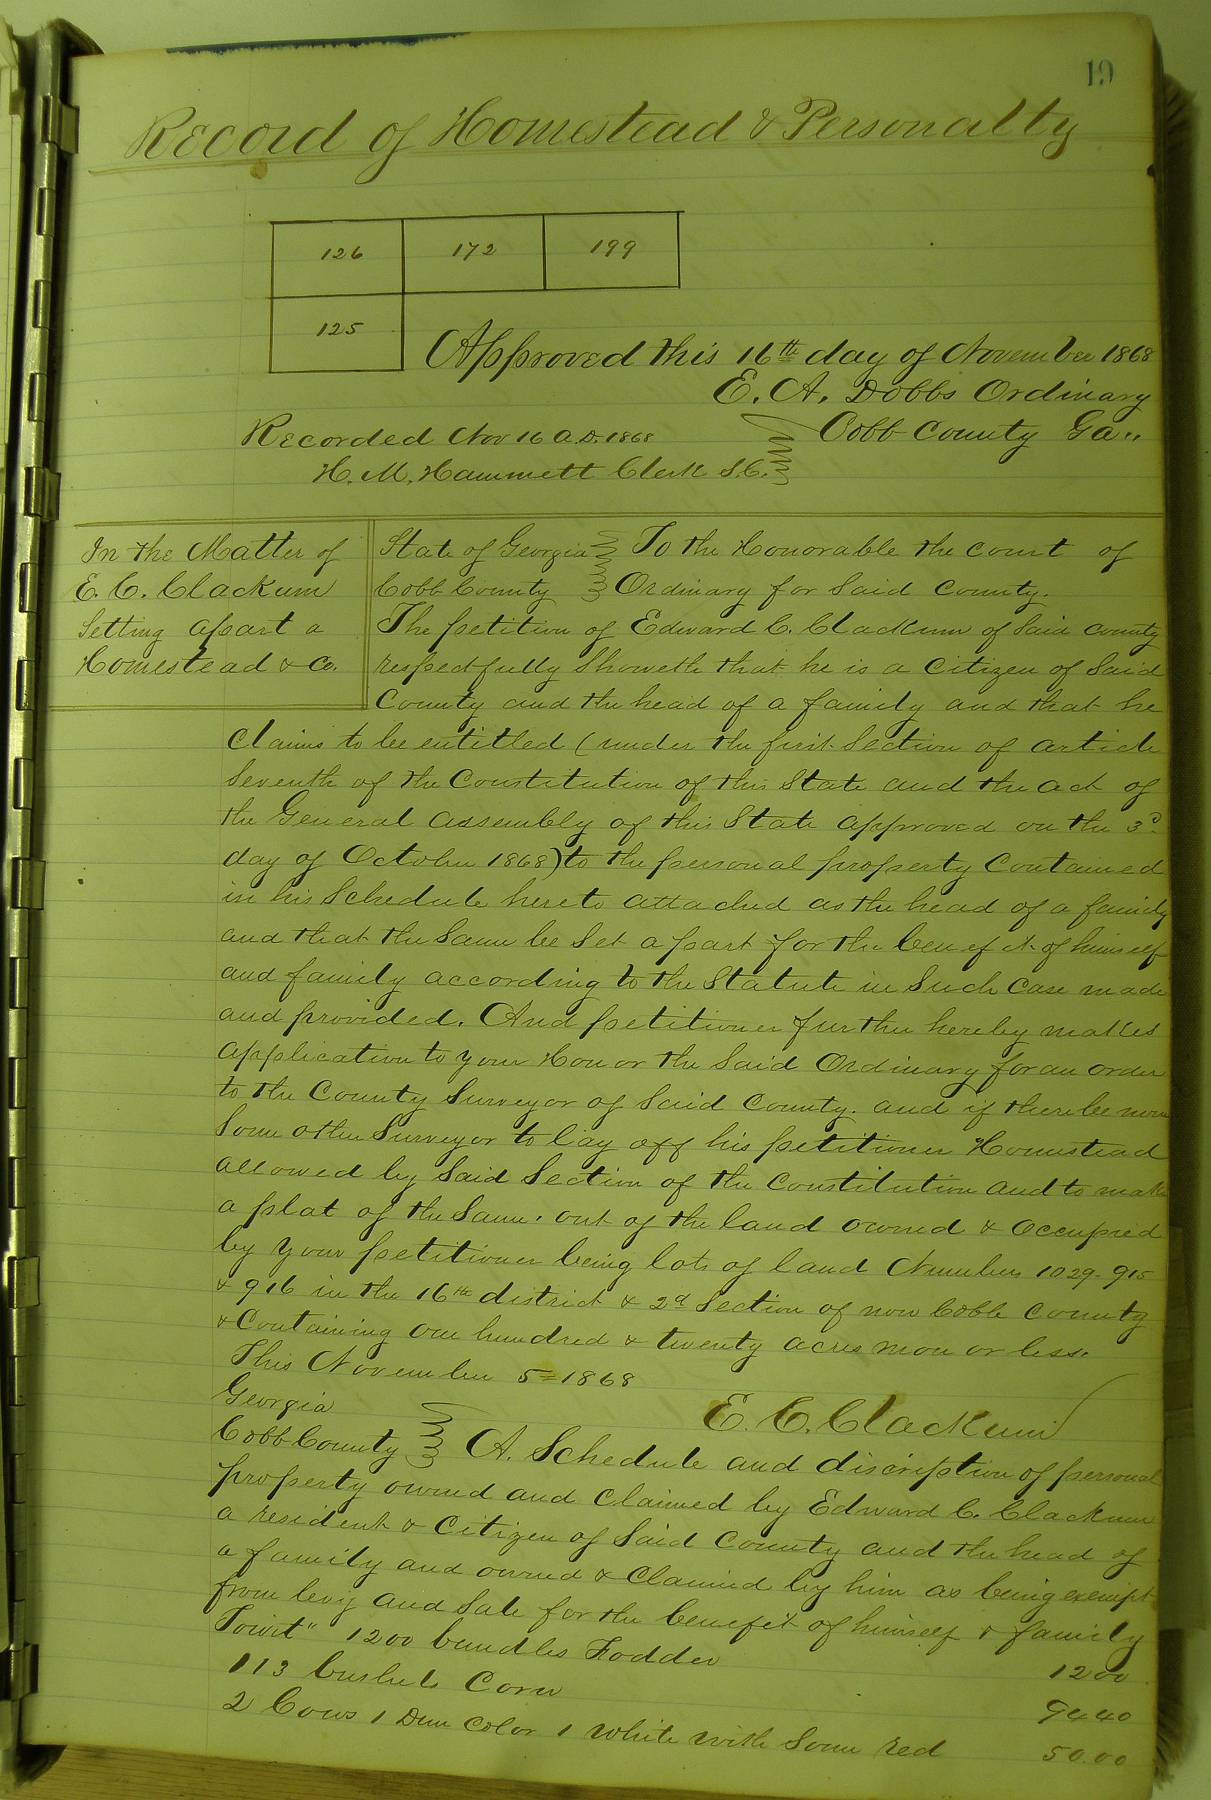 19
Record of Homestead & Personalty
126 172 199
125
Approved this 16th day of November 1868
E. A. Dobbs Ordinary
Cobb County Ga,,
Recorded Nov 16 A.D. 1868
H. M. Hammett Clerk S.C.
In the Matter of
E. C. Clackum
Setting apart a
Homestead & Co.
State of Georgia To the Honorable the court of
Cobb County Ordinary for Said County.
The petition of Edward C. Clackum of Said County
respectfully Showeth that he is a Citizen of Said
County and the head of a family and that he
Claims to be entitled (under the first Section of article
Seventh of the Constitution of this State and the act of
the General assembly of this State approved on the 3d
day of October 1868) to the personal property Contained
in his Schedule hereto attached as the head of a family
and that the Same be Set apart for the benefit of himself
and family according to the Statute in Such Case made
and provided. And petitioner further hereby makes
application to your Honor the Said Ordinary for an order
to the County Surveyor of Said County. and if there be none
Some other Surveyor to lay off his petitioner Homestead
allowed by Said Section of the Constitution and to make
a plat of the Same. out of the land owned & occupied
by your petitioner being lots of land Numbers 1029. 915
& 916 in the 16th district & 2d Section of now Cobb County
& Containing one hundred & twenty acres more or less.
This November 5 = 1868
E. C. Clackum
Georgia
Cobb County A. Schedule and discription of personal
property owned and Claimed by Edward C. Clackum
a resident & Citizen of Said County and the head of
a family and owned & Claimed by him as being exempt
from levy and Sale for the benefit of himself & family
Towit" 1200 bundles Fodder 12 00
113 bushels Corn 94 40
2 Cows 1 Dun Color 1 White with Some red 50.00